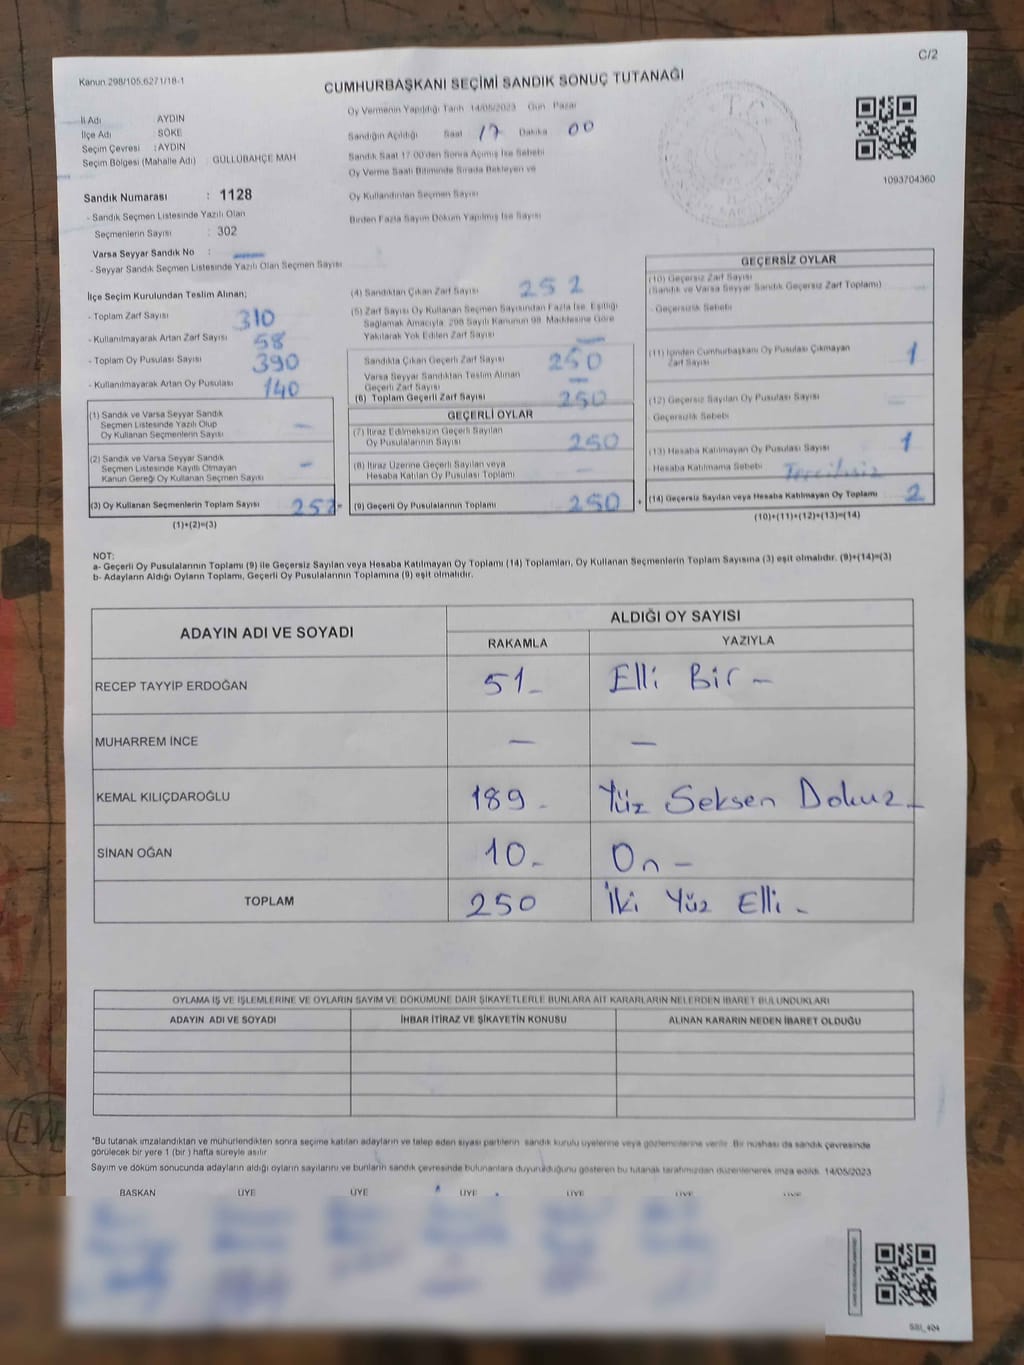 C/2
Kanun 298/105,6271/18-1
CUMHURBAŞKANI SEÇİMİ SANDIK SONUÇ TUTANAĞI
İl Adı AYDIN
İlçe Adı SÖKE
Seçim Çevresi : AYDIN
Seçim Bölgesi (Mahalle Adı) : GÜLLÜBAHÇE MAH
Sandık Numarası : 1128
- Sandık Seçmen Listesinde Yazılı Olan
Seçmenlerin Sayısı : 302
Varsa Seyyar Sandık No :
- Seyyar Sandık Seçmen Listesinde Yazılı Olan Seçmen Sayısı
Oy Vermenin Yapıldığı Tarih 14/05/2023 Gün Pazar
Sandığın Açıldığı Saat 17 Dakika 00
Sandık Saat 17:00'den Sonra Açılmış İse Sebebi
Oy Verme Saati Bitiminde Sırada Bekleyen ve
Oy Kullandırılan Seçmen Sayısı
Birden Fazla Sayım Döküm Yapılmış İse Sayısı
1093704360
İlçe Seçim Kurulundan Teslim Alınan;
- Toplam Zarf Sayısı 310
- Kullanılmayarak Artan Zarf Sayısı 58
- Toplam Oy Pusulası Sayısı 390
- Kullanılmayarak Artan Oy Pusulası 140
(1) Sandık ve Varsa Seyyar Sandık
Seçmen Listesinde Yazılı Olup
Oy Kullanan Seçmenlerin Sayısı –
(2) Sandık ve Varsa Seyyar Sandık
Seçmen Listesinde Kayıtlı Olmayan
Kanun Gereği Oy Kullanan Seçmen Sayısı –
(3) Oy Kullanan Seçmenlerin Toplam Sayısı 252 =
(1)+(2)=(3)
(4) Sandıktan Çıkan Zarf Sayısı 252
(5) Zarf Sayısı Oy Kullanan Seçmen Sayısından Fazla İse, Eşitliği
Sağlamak Amacıyla, 298 Sayılı Kanunun 98. Maddesine Göre
Yakılarak Yok Edilen Zarf Sayısı –
Sandıkta Çıkan Geçerli Zarf Sayısı 250
Varsa Seyyar Sandıktan Teslim Alınan
Geçerli Zarf Sayısı –
(6) Toplam Geçerli Zarf Sayısı 250
GEÇERLİ OYLAR
(7) İtiraz Edilmeksizin Geçerli Sayılan
Oy Pusulalarının Sayısı 250
(8) İtiraz Üzerine Geçerli Sayılan veya
Hesaba Katılan Oy Pusulası Toplamı –
(9) Geçerli Oy Pusulalarının Toplamı 250 +
GEÇERSİZ OYLAR
(10) Geçersiz Zarf Sayısı
(Sandık ve Varsa Seyyar Sandık Geçersiz Zarf Toplamı)
Geçersizlik Sebebi
(11) İçinden Cumhurbaşkanı Oy Pusulası Çıkmayan
Zarf Sayısı 1
(12) Geçersiz Sayılan Oy Pusulası Sayısı –
Geçersizlik Sebebi
(13) Hesaba Katılmayan Oy Pusulası Sayısı 1
Hesaba Katılmama Sebebi Tercihsiz
(14) Geçersiz Sayılan veya Hesaba Katılmayan Oy Toplamı 2
(10)+(11)+(12)+(13)=(14)
NOT:
a- Geçerli Oy Pusulalarının Toplamı (9) ile Geçersiz Sayılan veya Hesaba Katılmayan Oy Toplamı (14) Toplamları, Oy Kullanan Seçmenlerin Toplam Sayısına (3) eşit olmalıdır. (9)+(14)=(3)
b- Adayların Aldığı Oyların Toplamı, Geçerli Oy Pusulalarının Toplamına (9) eşit olmalıdır.
ADAYIN ADI VE SOYADI ALDIĞI OY SAYISI
RAKAMLA YAZIYLA
RECEP TAYYİP ERDOĞAN 51- Elli Bir -
MUHARREM İNCE – –
KEMAL KILIÇDAROĞLU 189- Yüz Seksen Dokuz -
SİNAN OĞAN 10- On -
TOPLAM 250 İki Yüz Elli -
OYLAMA İŞ VE İŞLEMLERİNE VE OYLARIN SAYIM VE DÖKÜMÜNE DAİR ŞİKAYETLERLE BUNLARA AİT KARARLARIN NELERDEN İBARET BULUNDUKLARI
ADAYIN ADI VE SOYADI İHBAR İTİRAZ VE ŞİKAYETİN KONUSU ALINAN KARARIN NEDEN İBARET OLDUĞU
*Bu tutanak imzalandıktan ve mühürlendikten sonra seçime katılan adayların ve talep eden siyasi partilerin sandık kurulu üyelerine veya gözlemcilerine verilir. Bir nüshası da sandık çevresinde
görülecek bir yere 1 (bir) hafta süreyle asılır
Sayım ve döküm sonucunda adayların aldığı oyların sayılarını ve bunların sandık çevresinde bulunanlara duyurulduğunu gösteren bu tutanak tarafımızdan düzenlenerek imza edildi. 14/05/2023
BAŞKAN ÜYE ÜYE ÜYE ÜYE ÜYE ÜYE